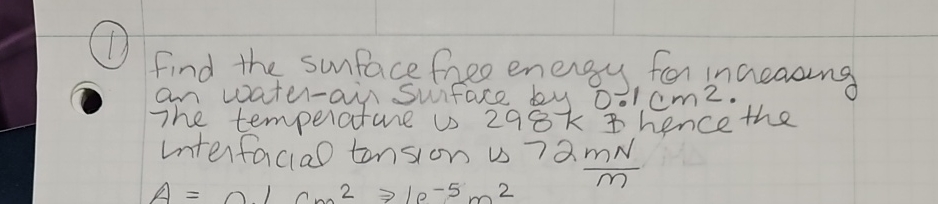 ①
find the surface free energy for increasing
an water-air surface by 0.1 cm2.
The temperature is 298K & hence the
interfacial tension is 72 mN/m
A = 0.1 cm² ⇒ 1e⁻⁵ m²